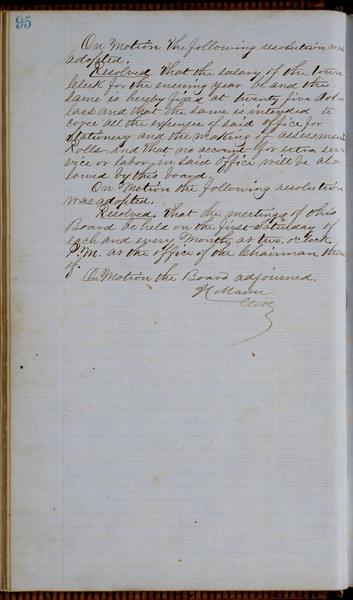 95
On Motion the following resolution was
adopted.
Resolved, That the salary of the town
Clerk for the ensuing year be and the
same is hereby fixed at twenty five dol-
lars and that the same is intended to
cover all the expenses of said office for
stationery and the making of assessment
Rolls and that no account for extra ser-
vice or labor in said office will be al-
lowed by this board.
On Motion the following resolution
was adopted.
Resolved, That the meetings of this
Board be held on the first Saturday of
each and every Month at two o,clock
P.M. at the office of the Chairman there
of.
On Motion the Board adjourned.
Clerk